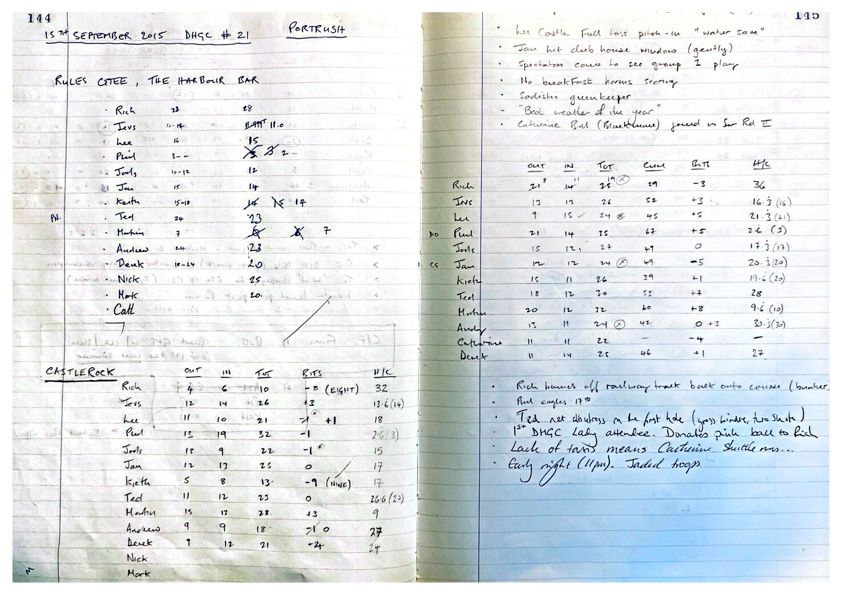 144
15TH SEPTEMBER 2015 DHGC # 21 PORTRUSH
RULES CTEE, THE HARBOUR BAR
· Rich 28
· Jevs 11-14 11.0
· Lee 16 15
· Phil 3-- 2-
· Jools 10-12 12
· Jan 15 14
· Keith 15-18 14
· Ted 24 23
· Martin 7 7
· Andrew 24 23
· Derek 18-24 20
· Nick 25
· Mark 20
· Catt
CASTLEROCK
OUT IN TOT BITS H/C
Rich 4 6 10 -8 (EIGHT) 32
Jevs 12 14 26 +3 13.6 (14)
Lee 11 10 21 +1 18
Phil 13 19 32 -1 2.6 (3)
Jools 13 9 22 -1 15
Jan 12 13 25 0 17
Kieth 5 8 13 -9 (NINE) 17
Ted 11 12 23 0 26.6 (27)
Martin 15 13 28 +3 9
Andrew 9 9 18 -1 0 27
Derek 9 12 21 +2 24
Nick
Mark
145
· Lee Castle Full toss pitch-in "water save"
· Jan hit club house window (gently)
· Spectators come to see group 1 play
· No breakfast horns scoring
· Sadistic greenkeeper
· "Best weather of the year"
· Catherine Bull (Blackmore) joined us for Rd II
OUT IN TOT CUM BITS H/C
Rich 21 14 35 29 -3 36
Jevs 13 13 26 52 +3 16.3 (16)
Lee 9 15 24 45 +5 21.3 (21)
DO Phil 21 14 35 67 +5 2.6 (3)
Jools 15 12 27 49 0 17.3 (17)
CS Jan 12 12 24 49 -5 20.3 (20)
Kieth 15 11 26 39 +1 19.6 (20)
Ted 18 12 30 53 +7 28
Martin 20 12 32 60 +8 9.6 (10)
Andy 13 11 24 42 0 +3 30.3 (30)
Catherine 11 11 22 — -4 —
Derek 11 14 25 46 +1 27
· Rich hammers off railway track back onto course (bunker
· Phil eagles 17th
· Ted net albatross on the first hole (gross birdie, two shots)
· 1st DHGC Lady attendee. Donates pink ball to Rich
· Lack of taxis means Catherine Shuttle runs...
· Early night (11pm). Jaded troops